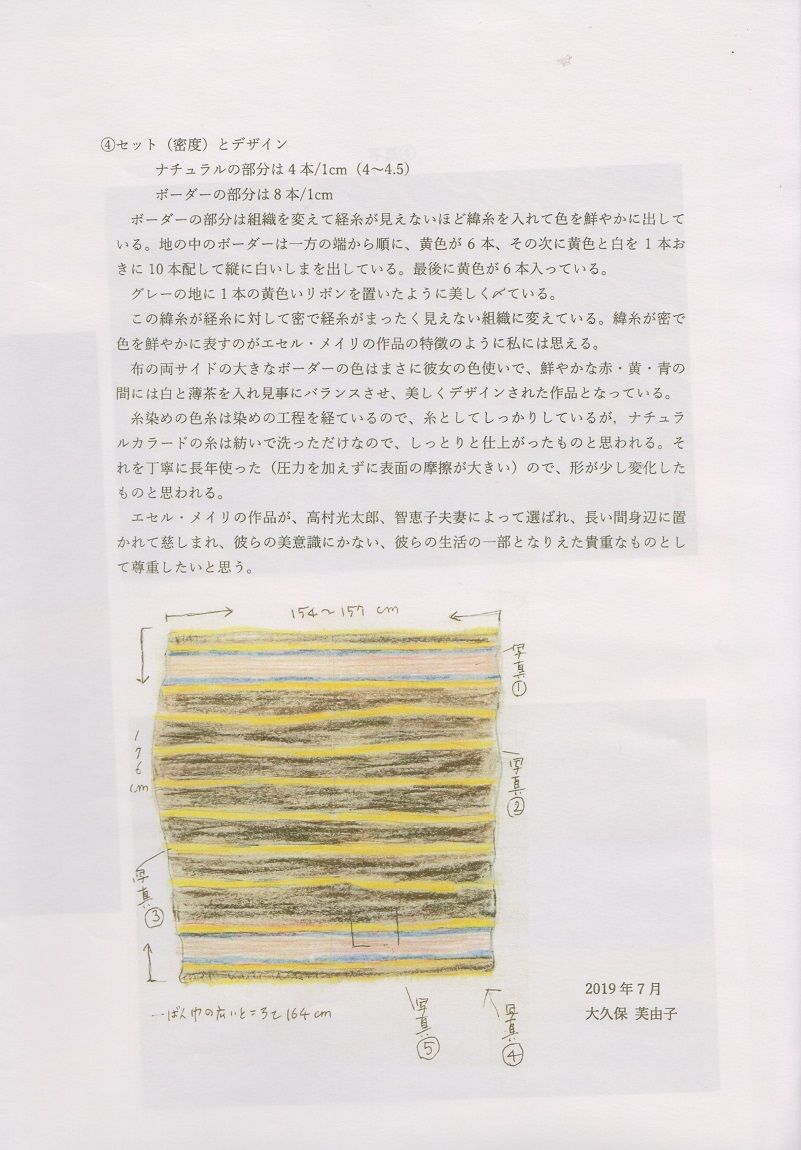 ④セット（密度）とデザイン
ナチュラルの部分は4本/1cm（4～4.5）
ボーダーの部分は8本/1cm
ボーダーの部分は組織を変えて経糸が見えないほど緯糸を入れて色を鮮やかに出して
いる。地の中のボーダーは一方の端から順に、黄色が6本、その次に黄色と白を1本お
きに10本配して縦に白いしまを出している。最後に黄色が6本入っている。
グレーの地に1本の黄色いリボンを置いたように美しく〆ている。
この緯糸が経糸に対して密で経糸がまったく見えない組織に変えている。緯糸が密で
色を鮮やかに表すのがエセル・メイリの作品の特徴のように私には思える。
布の両サイドの大きなボーダーの色はまさに彼女の色使いで、鮮やかな赤・黄・青の
間には白と薄茶を入れ見事にバランスさせ、美しくデザインされた作品となっている。
糸染めの色糸は染めの工程を経ているので、糸としてしっかりしているが，ナチュラ
ルカラードの糸は紡いで洗っただけなので、しっとりと仕上がったものと思われる。そ
れを丁寧に長年使った（圧力を加えずに表面の摩擦が大きい）ので、形が少し変化した
ものと思われる。
エセル・メイリの作品が、高村光太郎、智恵子夫妻によって選ばれ、長い間身辺に置
かれて慈しまれ、彼らの美意識にかない、彼らの生活の一部となりえた貴重なものとし
て尊重したいと思う。
154～157 cm
写真①
176cm
写真②
写真③
2019年7月
一ばん巾の広いところで164cm
大久保 芙由子
写真⑤
写真④